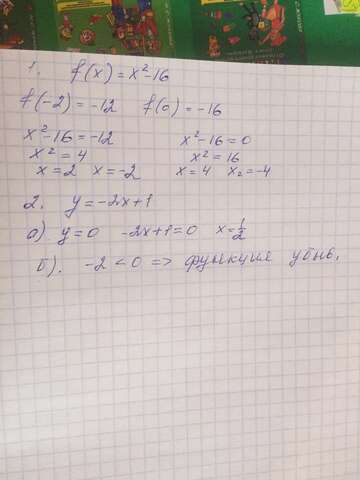 1. f(x) = x²-16
f(-2) = -12 f(0) = -16
x²-16 = -12 x²-16 = 0
x² = 4 x² = 16
x = 2 x = -2 x = 4 x₂ = -4
2. y = -2x+1
а) y = 0 -2x+1 = 0 x = 1/2
б). -2 < 0 => функция убыв.